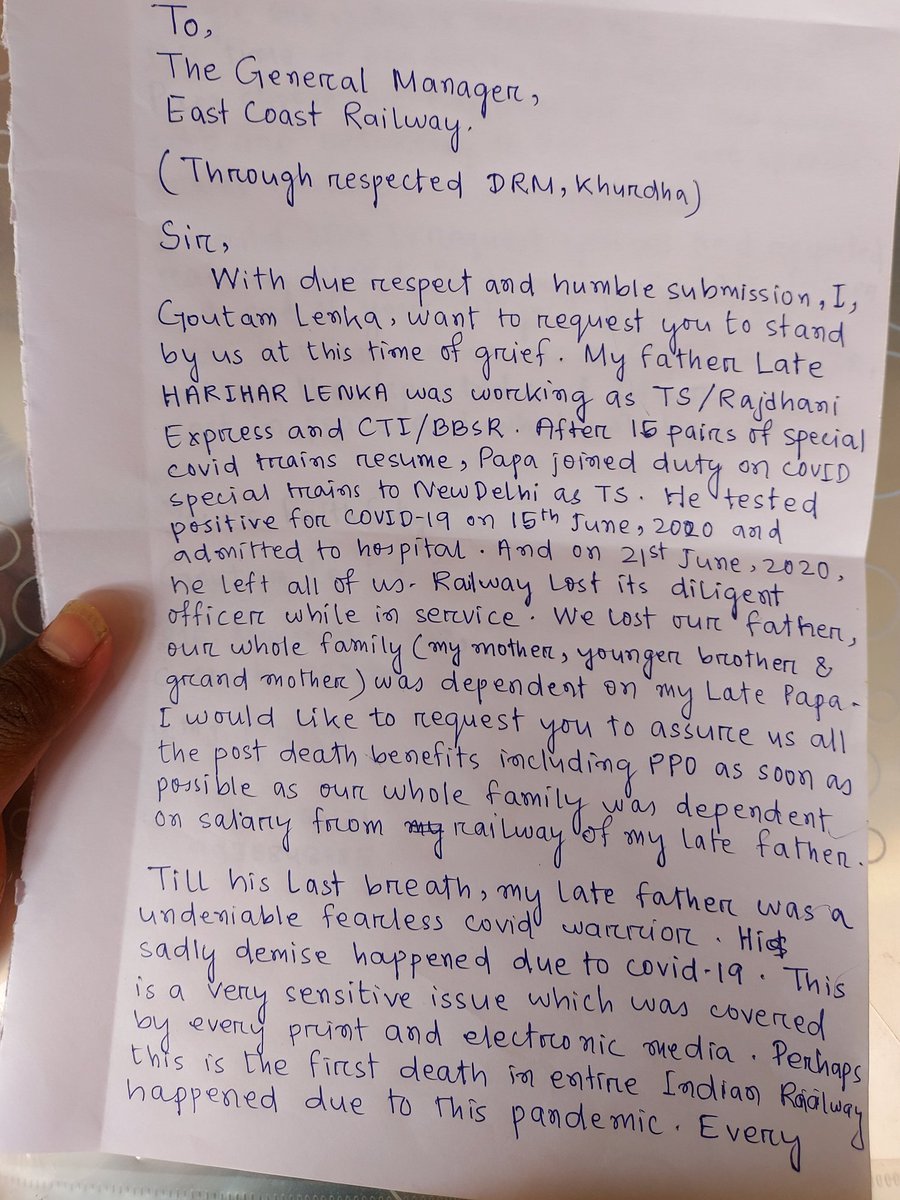 To,
The General Manager,
East Coast Railway.
(Through respected DRM, Khurdha)
Sir,
With due respect and humble submission, I,
Goutam Lenka, want to request you to stand
by us at this time of grief. My father Late
HARIHAR LENKA was working as TS/Rajdhani
Express and CTI/BBSR. After 15 pairs of special
covid trains resume, Papa joined duty on COVID
special trains to New Delhi as TS. He tested
positive for COVID-19 on 15th June, 2020 and
admitted to hospital. And on 21st June, 2020,
he left all of us. Railway Lost its diligent
officer while in service. We lost our father,
our whole family (my mother, younger brother &
grand mother) was dependent on my Late Papa.
I would like to request you to assure us all
the post death benefits including PPO as soon as
possible as our whole family was dependent
on salary from my railway of my late father.
Till his Last breath, my late father was a
undeniable fearless covid warrior. His
sadly demise happened due to covid-19. This
is a very sensitive issue which was covered
by every print and electronic media. Perhaps
this is the first death in entire Indian Railway
happened due to this pandemic. Every